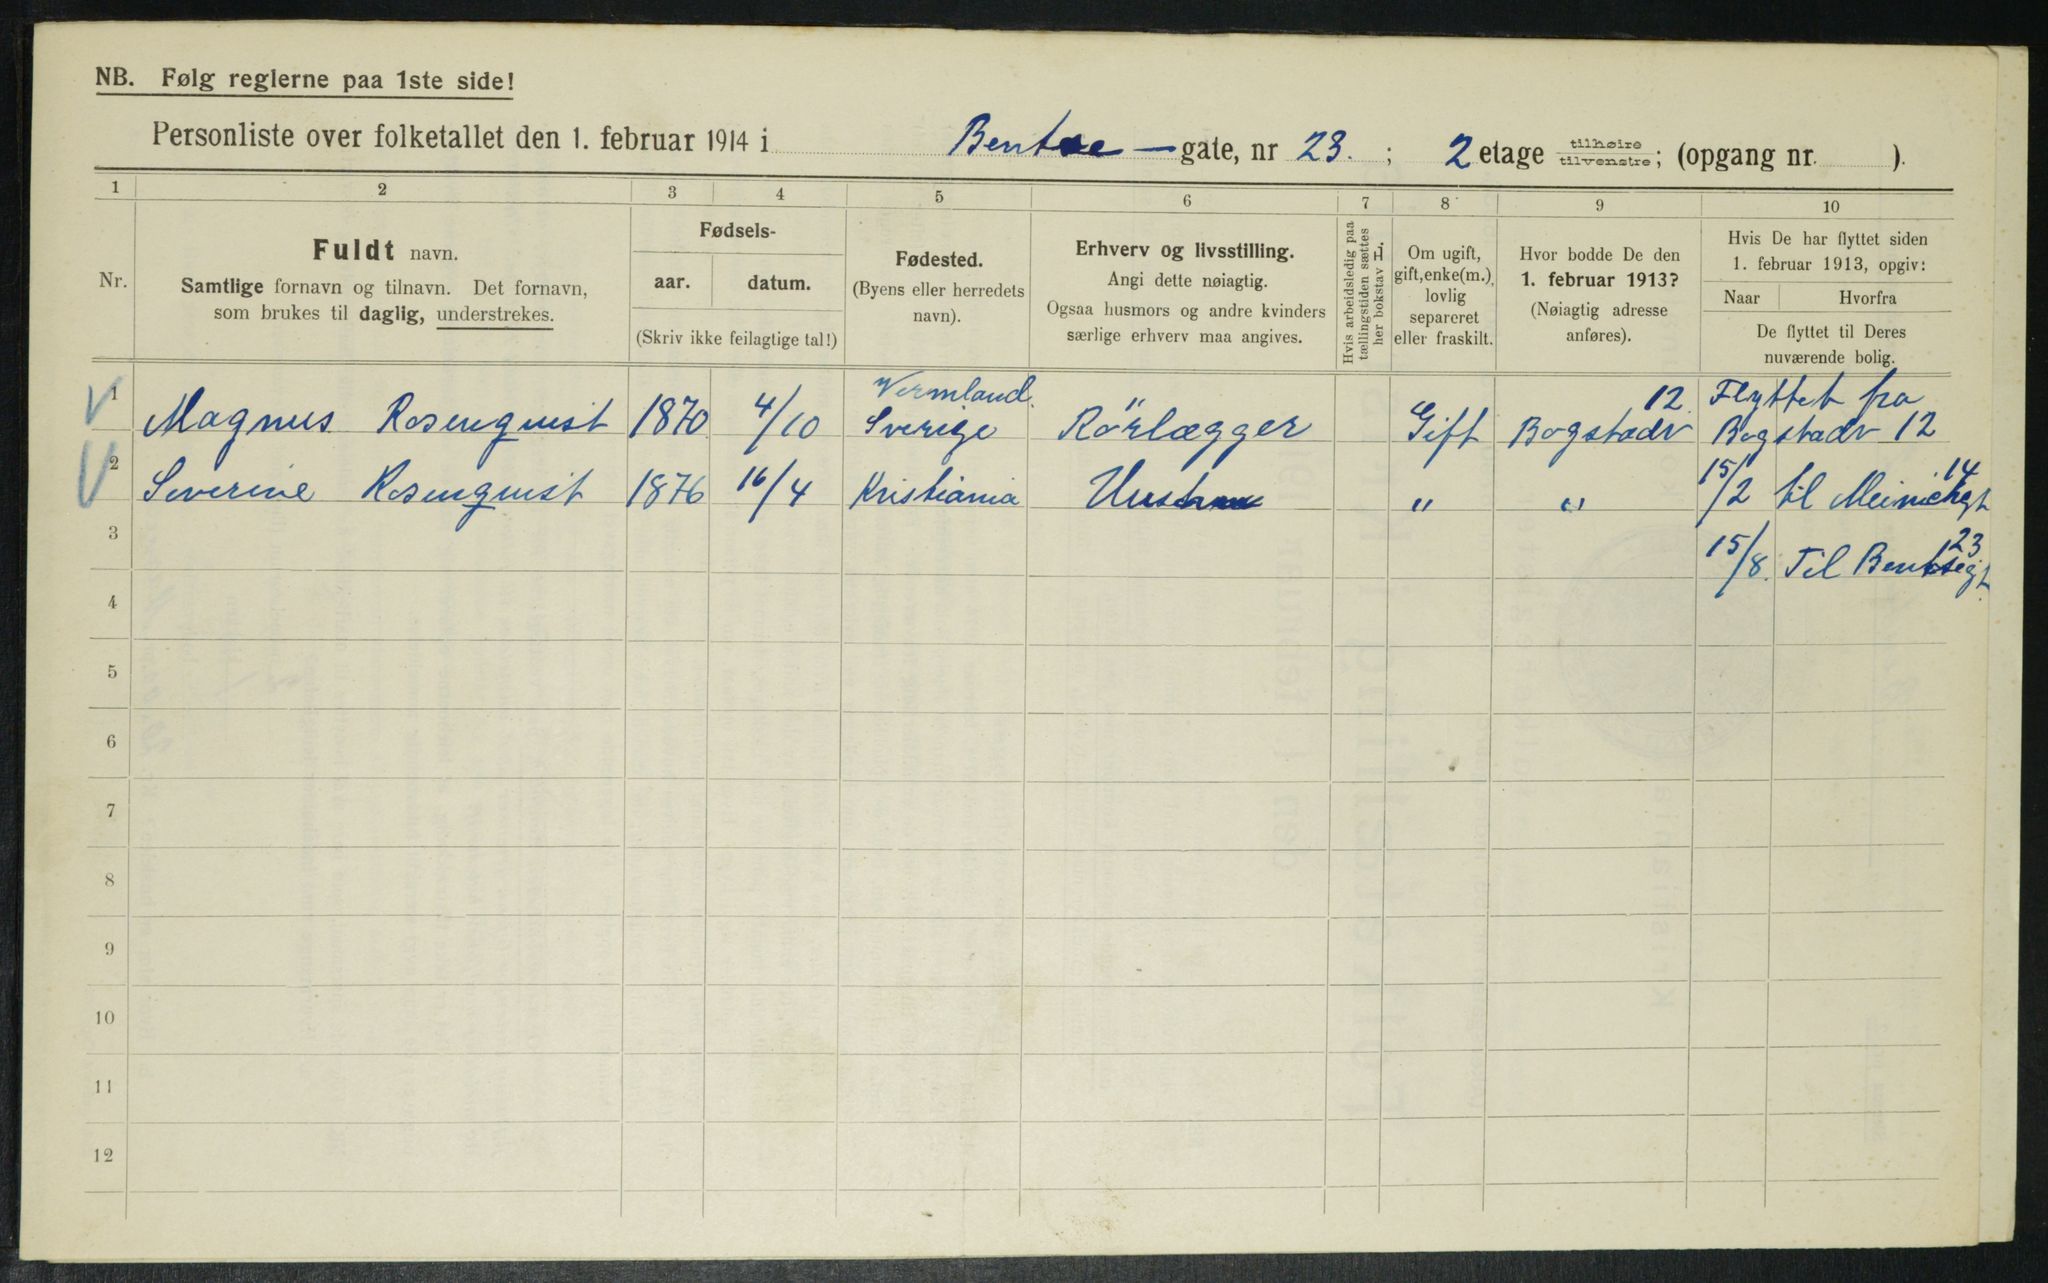 NB. Følg reglerne paa 1ste side!
Personliste over folketallet den 1. februar 1914 i Bentse — gate, nr 23. ; 2 etage tilhøire tilvenstre; (opgang nr. ).
1 2 3 4 5 6 7 8 9 10
Nr.
Fuldt navn.
Samtlige fornavn og tilnavn. Det fornavn,
som brukes til daglig, understrekes.
Fødsels-
aar. datum.
(Skriv ikke feilagtige tal!)
Fødested.
(Byens eller herredets
navn).
Erhverv og livsstilling.
Angi dette nøiagtig.
Ogsaa husmors og andre kvinders
særlige erhverv maa angives.
Hvis arbeidsledig paa
tællingstiden sættes
her bokstav L.
Om ugift,
gift, enke(m.),
lovlig
separeret
eller fraskilt.
Hvor bodde De den
1. februar 1913?
(Nøiagtig adresse
anføres).
Hvis De har flyttet siden
1. februar 1913, opgiv:
Naar Hvorfra
De flyttet til Deres
nuværende bolig.
1 Magnus Rosenquist 1870 4/10 Vermland. Sverige Rörlægger Gift Bogstadv 12 Flyttet fra
Bogstadv 12
2 Severine Rosenquist 1876 16/4 Kristiania Hustru " " 15/2 til Meinichgt 14
3 15/8. Til Bentsegt 23
4
5
6
7
8
9
10
11
12